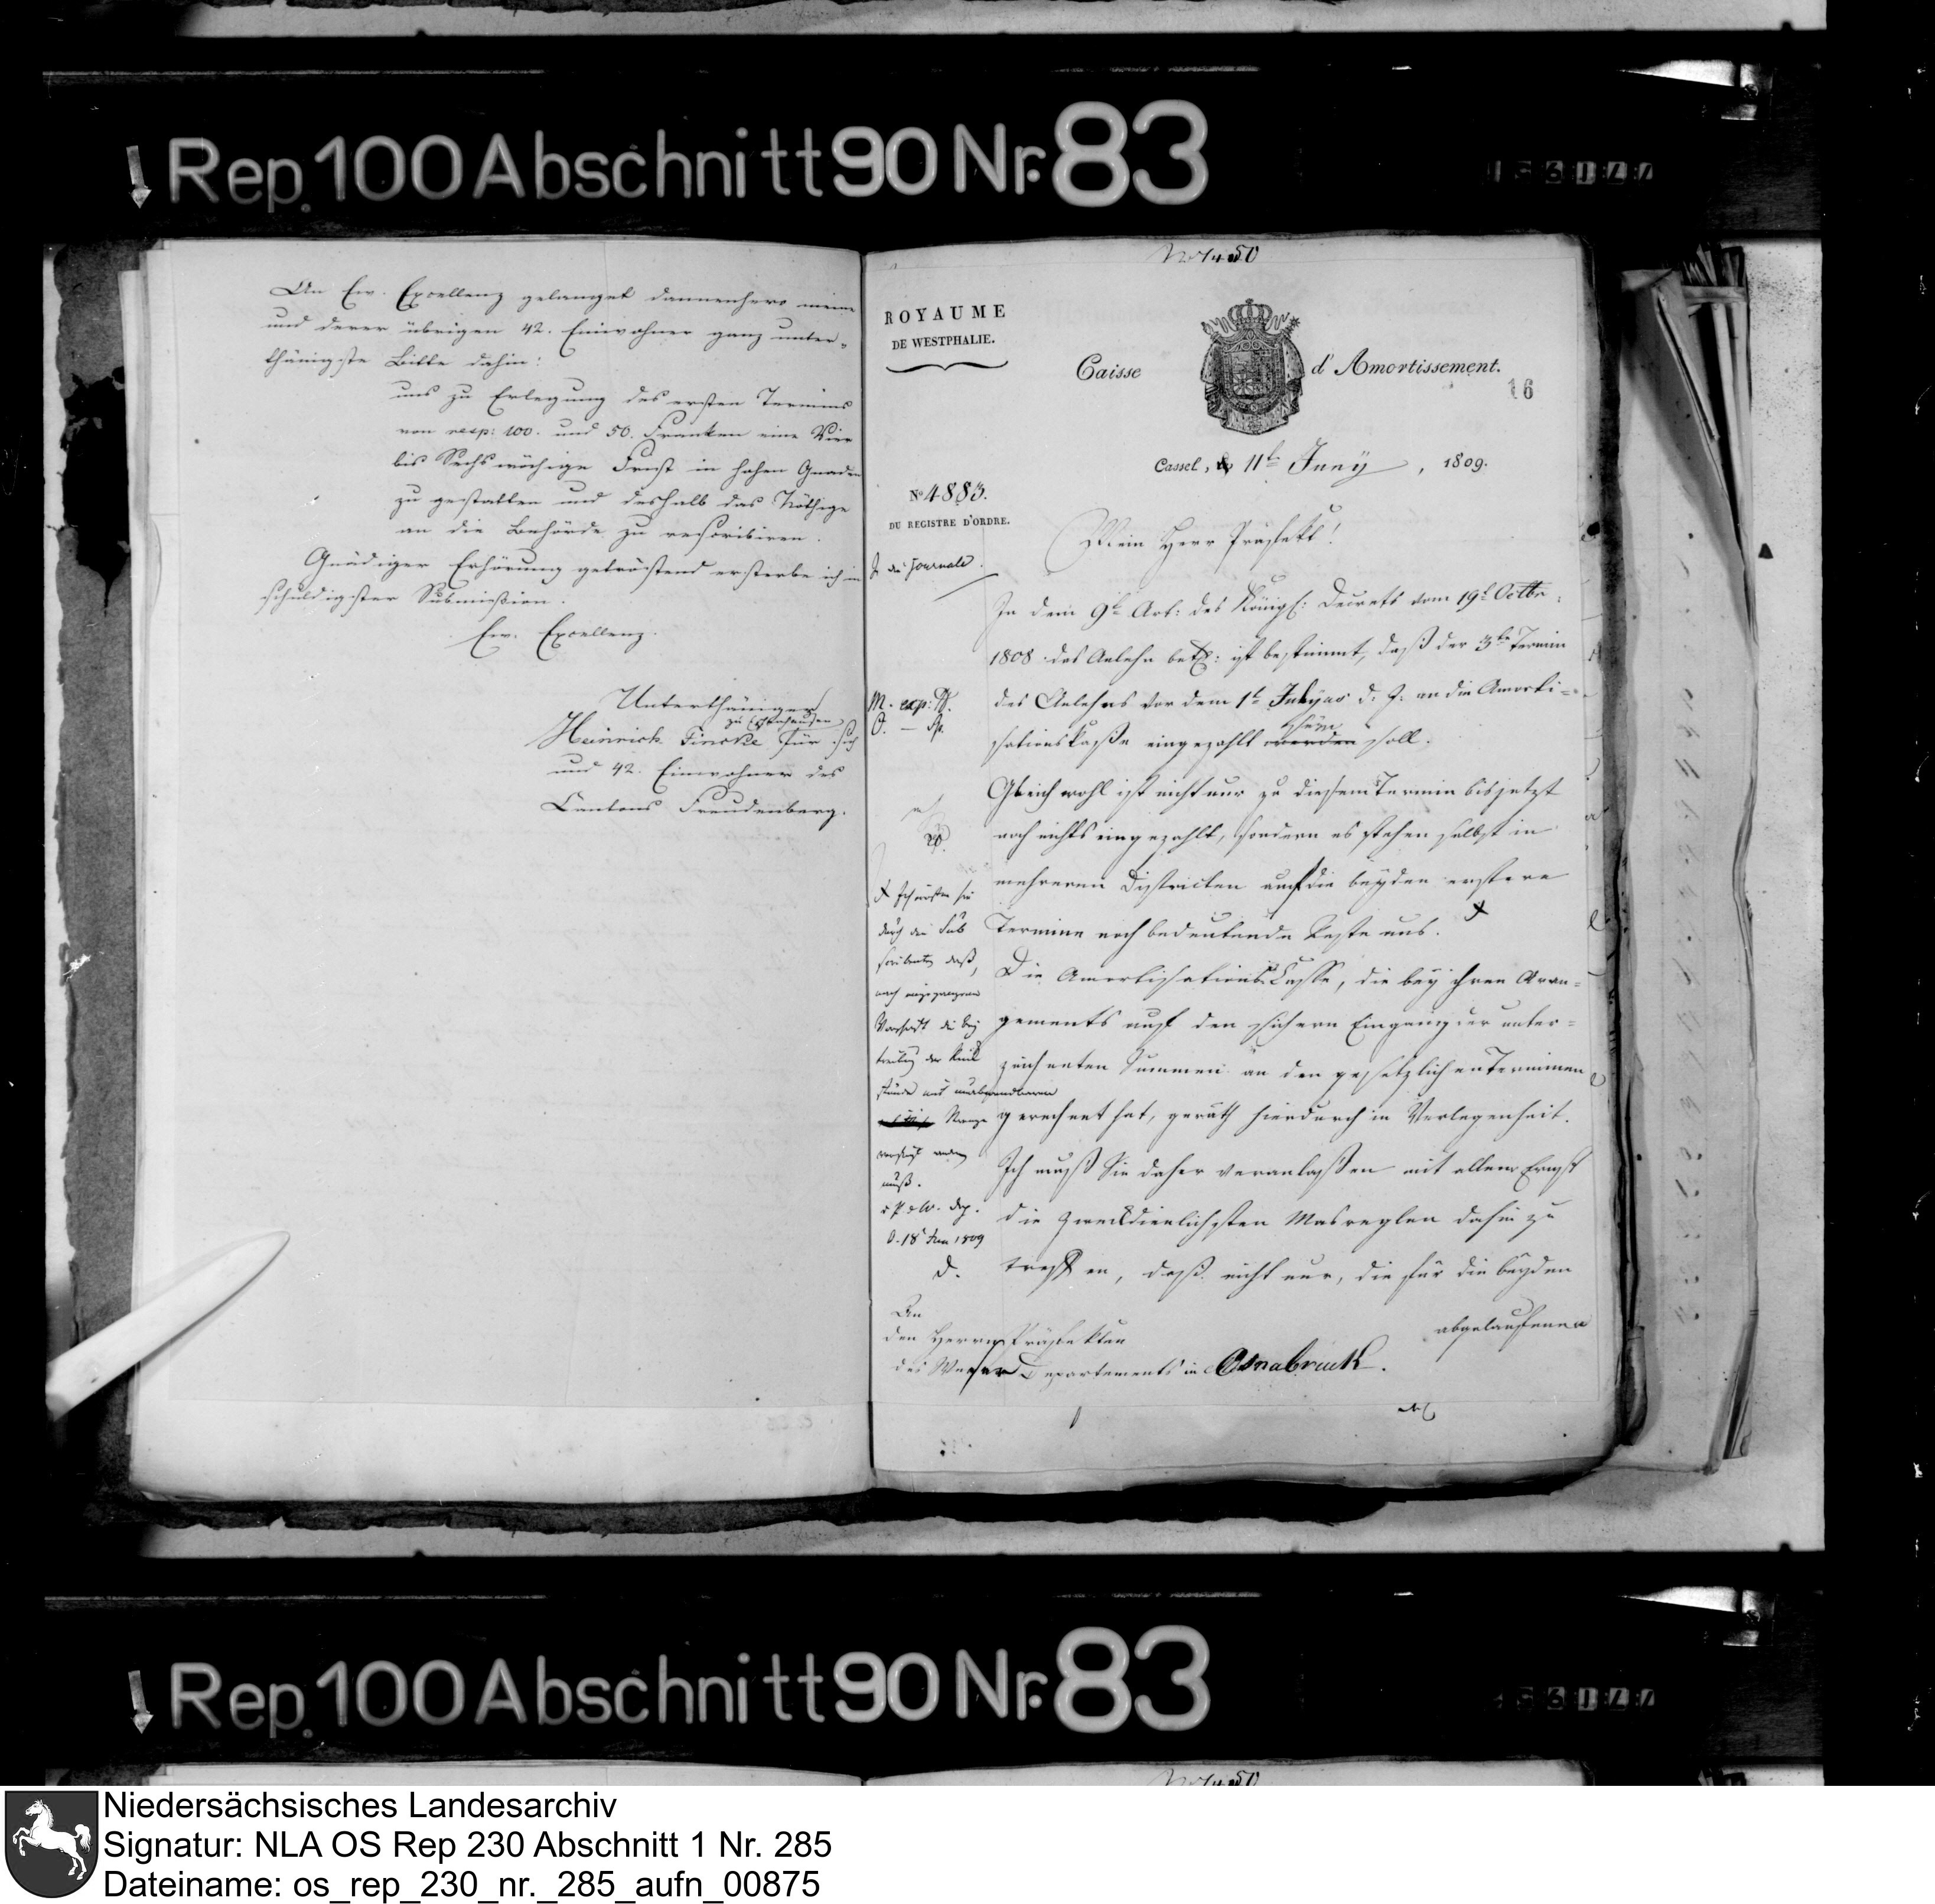 Rep. 100 Abschnitt 90 Nr. 83
An Ew. Excellenz gelanget dannenhero meine
und derer übrigen 42. Einwohner ganz unter-
thänigste Bitte dahin:
uns zu Erlegung des ersten Termins
von resp: 100. und 50. Franken eine Vier
bis Sechs wöchige Frist in hohen Gnaden
zu gestatten und deshalb das Nöthige
an die Behörde zu rescribiren.
Gnädiger Erhörung getröstend ersterbe ich in
schuldigster Submission.
Ew. Excellenz.
Unterthäniger
Heinrich Fincke für sich
und 42. Einwohner des
Cantons Freudenberg.
ROYAUME
DE WESTPHALIE.
Caisse d'Amortissement.
16
Cassel, 11t Juny, 1809.
No 4883.
DU REGISTRE D'ORDRE.
Mein Herr Präfekt!
In dem 9t Art: des Königl: Decrets vom 19t Octbr:
1808 das Anlehn betr: ist bestimmt, daß der 3te Termin
des Anlehns vor dem 1t d. J. an die Amorti-
sationskasse eingezahlt werden seyn soll.
Gleichwohl ist nicht nur zu diesem Termin bis jetzt
noch nichts eingezahlt, sondern es stehen selbst in
mehreren Districten auf die beyden erstere
Termine noch bedeutende Reste aus.
Die Amortisations Casse, die bey ihren Arran-
gements auf den sichern Eingang der unter-
zeichneten Summen an den gesetzlichen Terminen
gerechnet hat, geräth hierdurch in Verlegenheit.
Ich muß Sie daher veranlassen mit allem Ernst
die zweckdienlichsten Masreglen dahin zu
treffen, daß nicht nur, die für die beyden
abgelaufenen
An
den Herrn Präfekten
des Weser Departements in Osnabrück.
durch die Sub
muß.
O. 18 Jun 1809
Rep. 100 Abschnitt 90 Nr. 83
Niedersächsisches Landesarchiv
Signatur: NLA OS Rep 230 Abschnitt 1 Nr. 285
Dateiname: os_rep_230_nr._285_aufn_00875